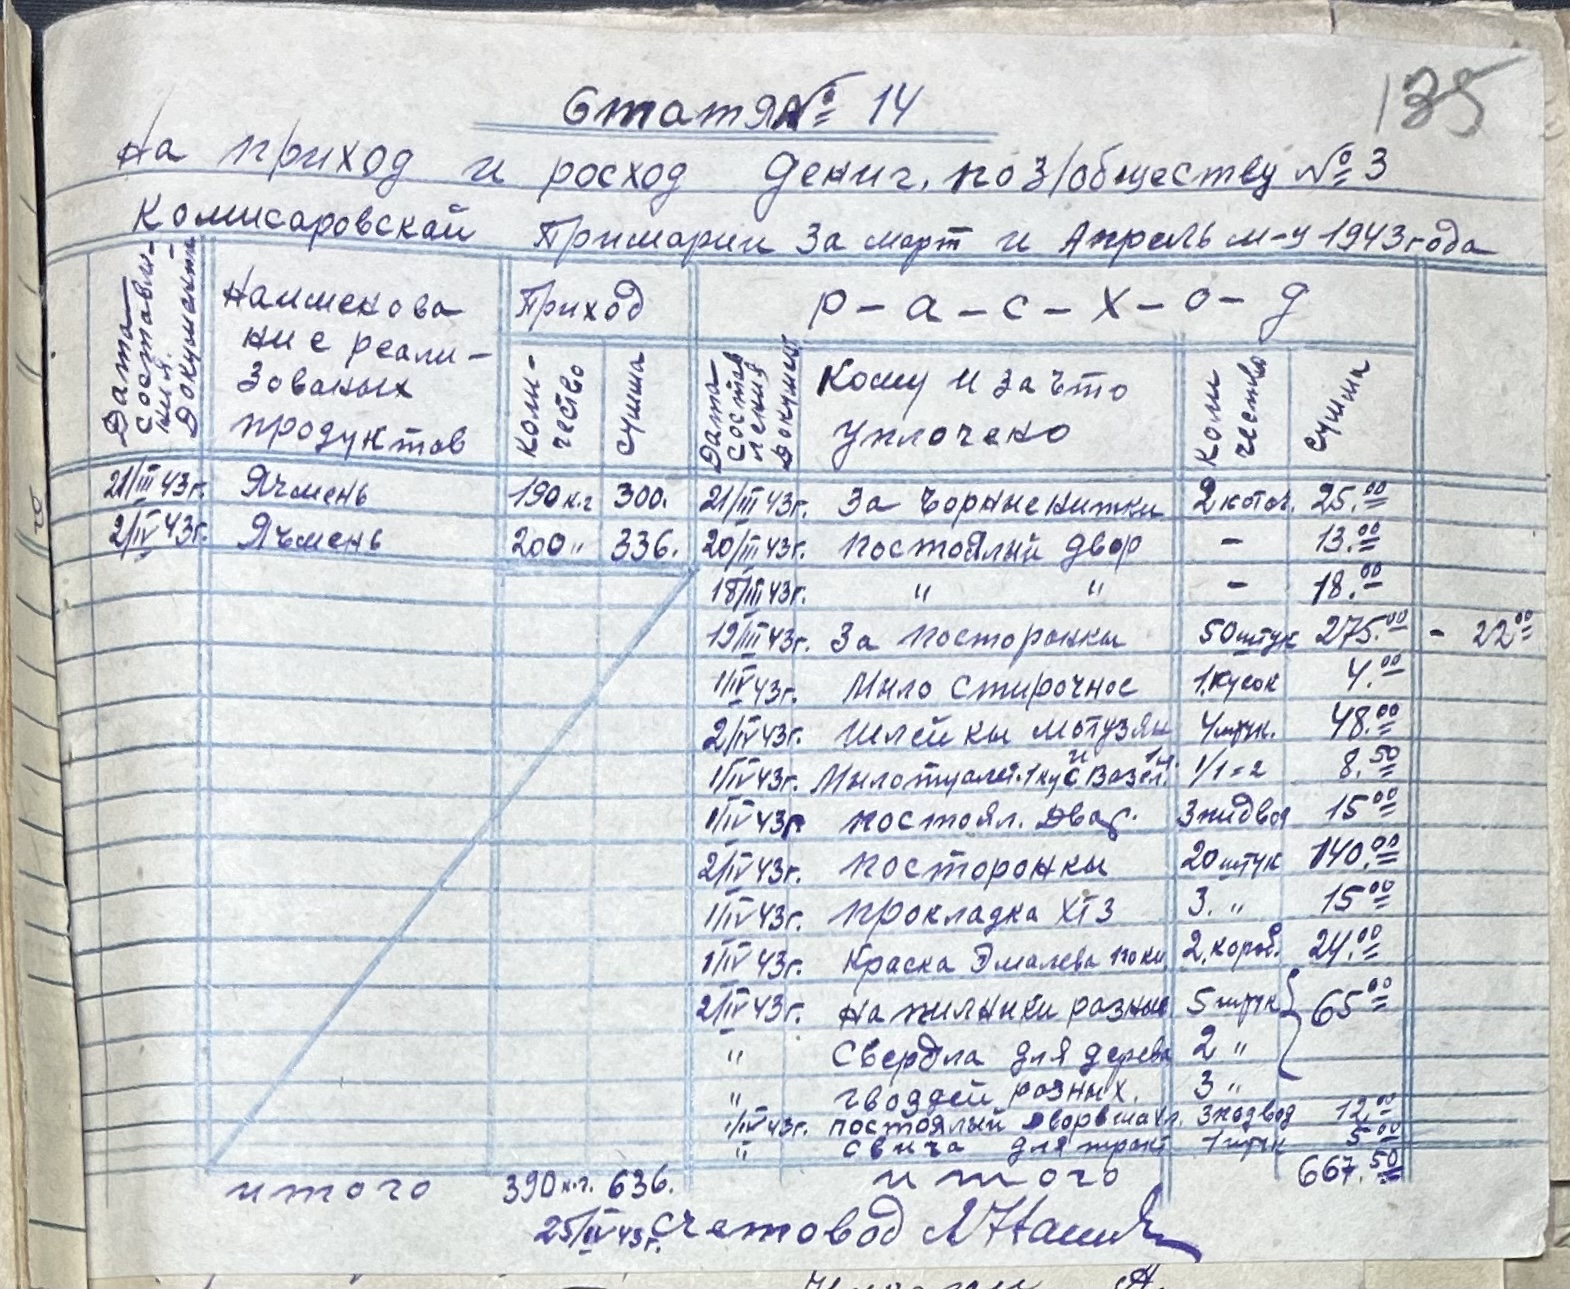 135
Статя № 14
На приход и росход Дениг. по з/обществу № 3
Комисаровской Примарии За март и Апрель м-ц 1943 года
Дата составлиния Документа
Наименование реализованых продуктов
Приход
Р-а-с-х-о-д
Количество
Сумма
Дата составления Докумен.
Кому и за что уплочено
Количество
Сумма
21/III 43г. Ячмень 190 к.г 300. 21/III 43г. За Чорные нитки 2 катуш. 25.00
2/IV 43г. Ячмень 200 " 336. 20/III 43г. Постоялый двор - 13.00
18/III 43г. " " - 18.00
19/III 43г. За посторонки 50 штук 275.00 - 22.00
1/IV 43г. Мыло Стирочное 1 кусок 4.00
2/IV 43г. Шлейки мотузян 4 штук. 48.00
1/IV 43г. Мыло туалет. 1 кус и Вазел. 1/1=2 8.50
1/IV 43г. Постоял. Двор. 3 подвод 15.00
2/IV 43г. Посторонки 20 штук 140.00
1/IV 43г. Прокладка ХТЗ 3. " 15.00
1/IV 43г. Краска Эмалева 2. короб. 24.00
2/IV 43г. Напильники разные 5 штук 65.00
" Свердла для дерева 2 "
" гвоздей разных. 3 "
1/IV 43г. постоялый двор 3 подвод 12.00
" Свича для тракт 1 штук 5.00
итого 390 к.г. 636. итого 667.50
25/IV 43г. Счетовод